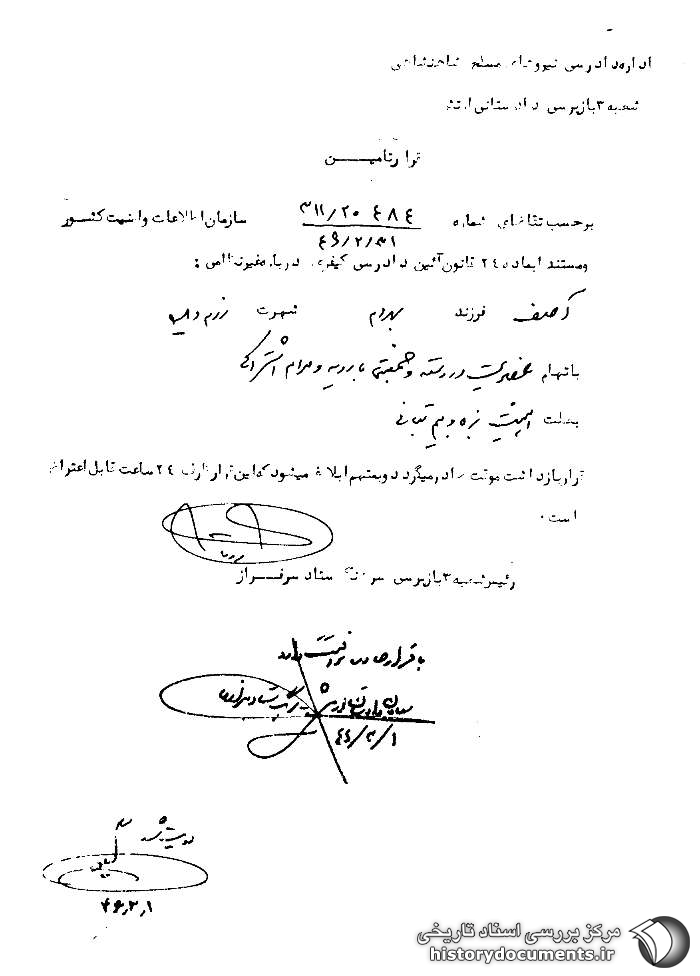 اداره دادرسی نیروهای مسلح شاهنشاهی
شعبه ۳ بازپرسی دادستانی ارتش
قرار تامین
برحسب تقاضای شماره ۳۱۱/۲۰ ۴۸۴ سازمان اطلاعات و امنیت کشور
۴۶/۲/۳۱
و مستند به ماده ۲۴ قانون آئین دادرسی کیفری درباره غیرنظامی :
فرزند بهرام شهرت
باتهام عضویت در دسته و جمعیتی با رویه و مرام اشتراکی
بعلت اهمیت بزه و بیم تبانی
قرار بازداشت موقت صادر میگردد و بمتهم ابلاغ میشود که این قرار ظرف ۲۴ ساعت قابل اعتراض
است ۰
رئیس شعبه ۳ بازپرسی سرهنگ ستاد سرفراز
با قرار صادره موافقت دارد
۴۶/۳/۱
رویت شد
۴۶/۳/۱
مرکز بررسی اسناد تاریخی
historydocuments.ir